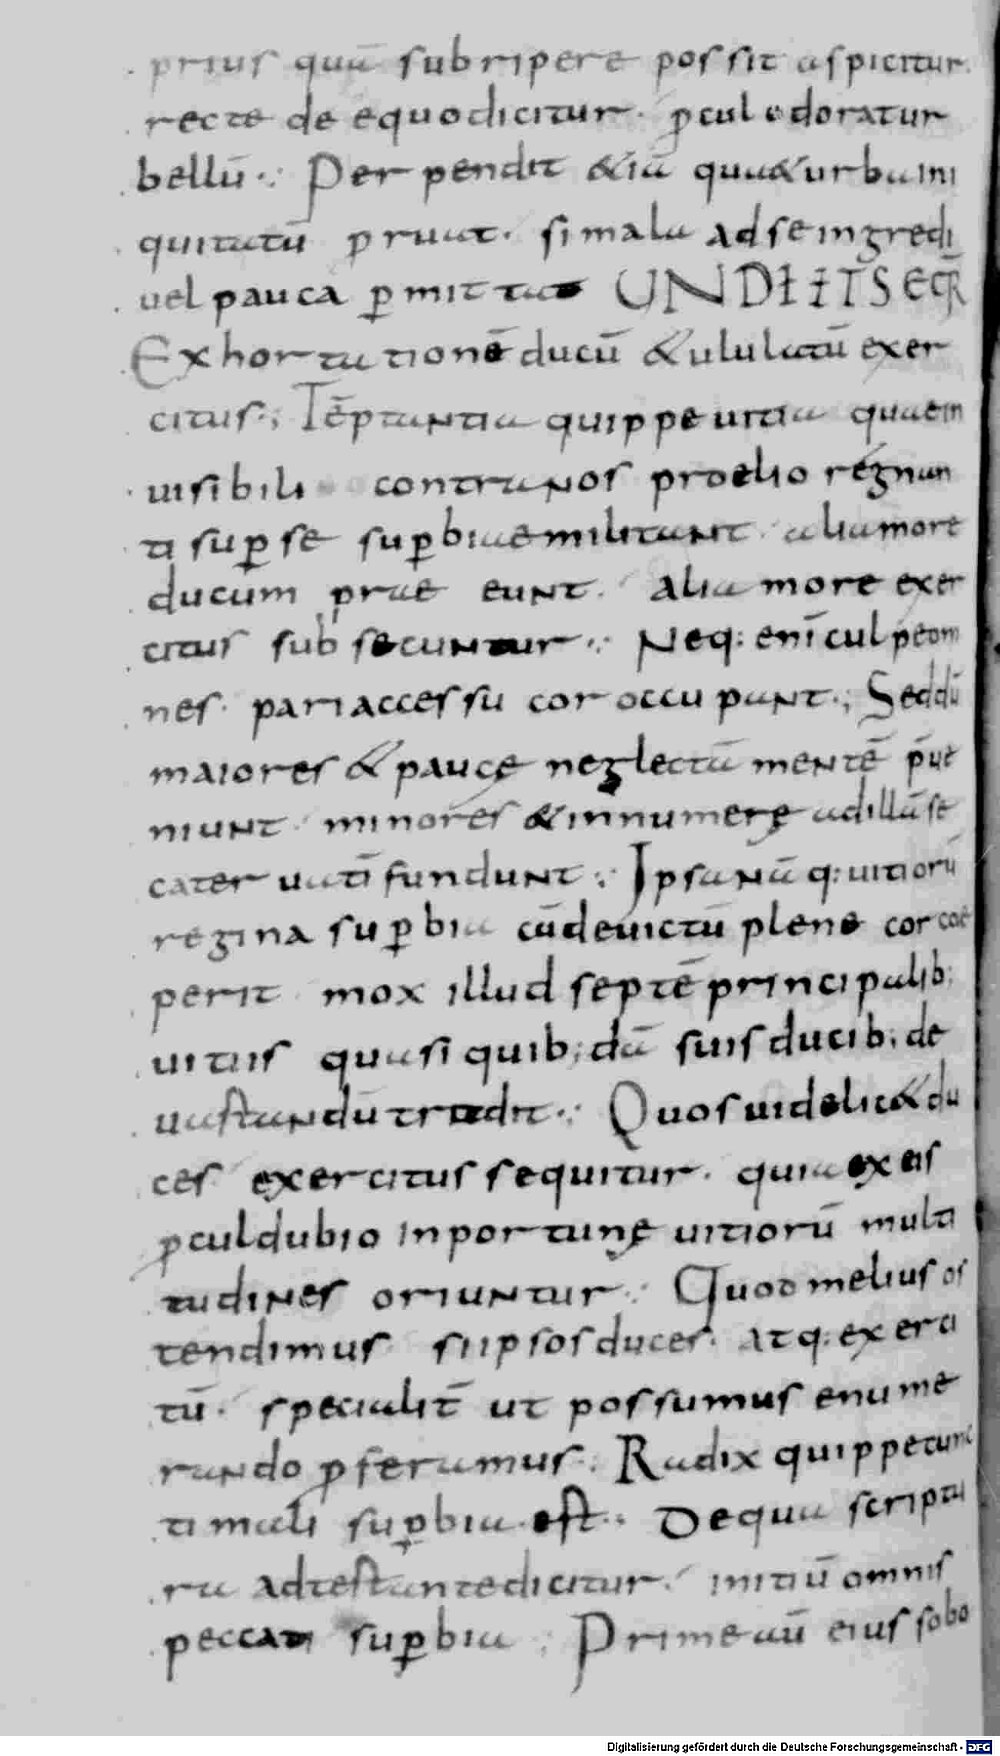 prius quā subripere possit aspicitur.
recte de equo dicitur. ꝓcul odoratur
bellū·: Perpendit &iā qua&urba ini
quitatū ꝓruat. si mala ad se ingredi
uel pauca ꝑmittat UNDE ET SEQR̄
Exhortationē ducū & ululatū exer
citus·; Tēptantia quippe uitia quae in
uisibili contra nos proelio regnan
ti suꝑ se suꝑbiae militant· alia more
ducum prae eunt. alia more exer
citus sub secuntur·: Neq: enī culpe om
nes pari accessu cor occupant·; Sed dū
maiores & paucę neglectū mentē p̄ue
niunt· minores & innumerę ad illā se
cateruatī fundunt·: Ipsa nāq: uitiorū
regina suꝑbia cū deuictū plene cor coe
perit mox illud septē principalib;
uitiis quasi quib;dā suis ducib; de
uastandū tradit·: Quos uidelic& du
ces exercitus sequitur. quia ex eis
ꝓculdubio inportunę uitiorū multi
tudines oriuntur·: Quod melius os
tendimus si ipsos duces. atq: exerci
tū. specialit̄ ut possumus enume
rando ꝓferamus·: Radix quippe cunc
ti mali suꝑbia est·: De qua scriptu
ra adtestante dicitur· initiū omnis
peccati suꝑbia·: Primeuū eius sobo